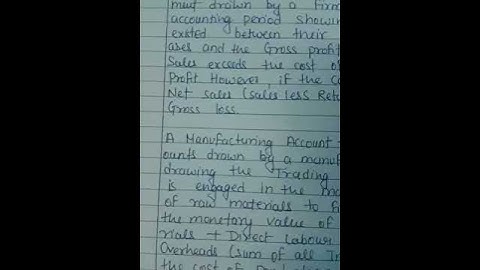 ment drawn by a firm
accounting period showin
existed between their
ases and the Gross profit
Sales exceeds the cost of
Profit However, if the Co
Net sales (sales less Retu
Gross loss.
A Manufacturing Account
ounts drawn by a manuf
drawing the Trading
is engaged in the ma
of raw materials to fi
the monetary value of
rials + Direct Labour
Overheads (sum of all In
the cost of